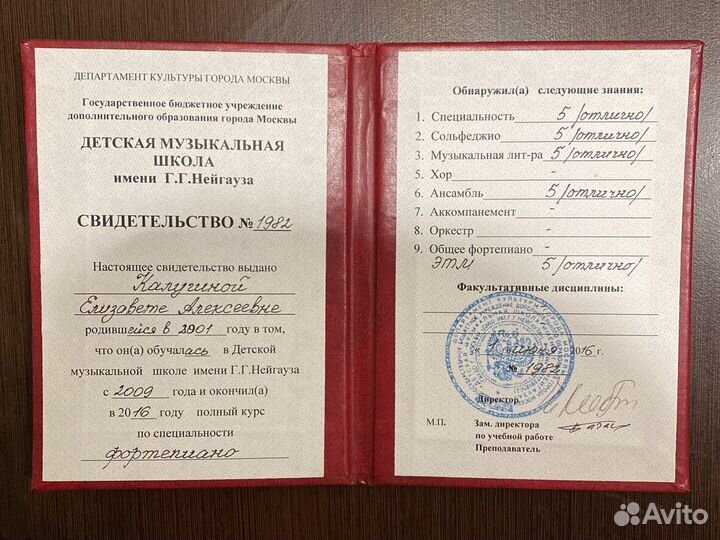 ДЕПАРТАМЕНТ КУЛЬТУРЫ ГОРОДА МОСКВЫ
Государственное бюджетное учреждение
дополнительного образования города Москвы
ДЕТСКАЯ МУЗЫКАЛЬНАЯ
ШКОЛА
имени Г.Г.Нейгауза
СВИДЕТЕЛЬСТВО № 1982
Настоящее свидетельство выдано
Калугиной
Елизавете Алексеевне
родившейся в 2001 году в том,
что он(а) обучалась в Детской
музыкальной школе имени Г.Г.Нейгауза
с 2009 года и окончил(а)
в 2016 году полный курс
по специальности
фортепиано
Обнаружил(а) следующие знания:
1. Специальность 5 /отлично/
2. Сольфеджио 5 /отлично/
3. Музыкальная лит-ра 5 /отлично/
5. Хор -
6. Ансамбль 5 /отлично/
7. Аккомпанемент -
8. Оркестр -
9. Общее фортепиано -
ЭТМ 5 /отлично/
Факультативные дисциплины:
1 2016 г.
№ 1982
Директор
М.П. Зам. директора
по учебной работе
Преподаватель
Avito